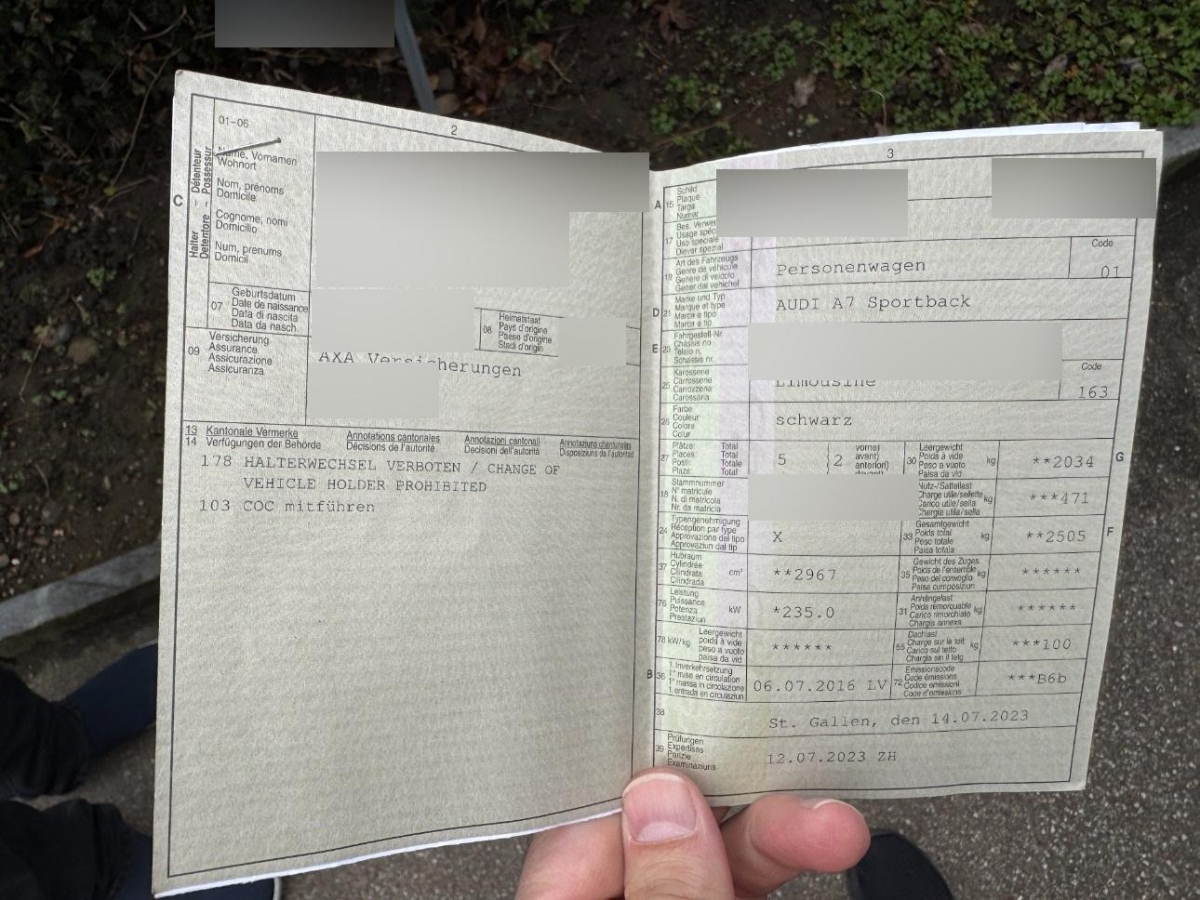 2
01-06
C
Halter - Détenteur
Detentore - Possessur
Name, Vornamen
Wohnort
Nom, prénoms
Domicile
Cognome, nomi
Domicilio
Num, prenums
Domicil
07
Geburtsdatum
Date de naissance
Data di nascita
Data da nasch.
08
Heimatstaat
Pays d'origine
Paese d'origine
Stadi d'origin
09
Versicherung
Assurance
Assicurazione
Assicuranza
AXA Versicherungen
13 Kantonale Vermerke Annotations cantonales Annotazioni cantonali Annotaziuns chantunalas
14 Verfügungen der Behörde Décisions de l'autorité Decisioni dell'autorità Disposiziuns da l'autoritad
178 HALTERWECHSEL VERBOTEN / CHANGE OF
VEHICLE HOLDER PROHIBITED
103 COC mitführen
3
A
15
Schild
Plaque
Targa
Numer
17
Bes.
Usage
Uso speciale
Diever spezial
Art des Fahrzeugs
Genre de véhicule
Genere di veicolo
Gener dal vehichel
Personenwagen
Code
01
D
21
Marke und Typ
Marque et type
Marca e tipo
Marca e tip
AUDI A7 Sportback
E
23
Fahrgestell-Nr.
Châssis no
Telaio n.
Schassis nr.
25
Karosserie
Carrosserie
Carrozzeria
Carossaria
Limousine
Code
163
26
Farbe
Couleur
Colore
Colur
schwarz
27
Plätze: Total
Places: Total
Posti: Totale
Plazs: Total
5
2
vorne)
avant)
anteriori)
30
Leergewicht
Poids à vide
Peso a vuoto
Paisa da vid
kg
**2034
G
18
Stammnummer
N° matricule
N. di matricola
Nr. da matricla
Nutz-/Sattellast
Charge utile/sellette
Carico utile/sella
Chargia utila/sella
kg
***471
24
Typengenehmigung
Réception par type
Approvazione del tipo
Approvaziun dal tip
X
33
Gesamtgewicht
Poids total
Peso totale
Paisa totala
kg
**2505
F
37
Hubraum
Cylindrée
Cilindrata
Cilindrada
cm³
**2967
35
Gewicht des Zuges
Poids de l'ensemble
Peso del convoglio
Paisa cumposiziun
kg
******
76
Leistung
Puissance
Potenza
Prestaziun
kW
*235.0
31
Anhängelast
Poids remorquable
Carico rimorchiato
Chargia annexa
kg
******
78 kW/kg
Leergewicht
poids à vide
peso a vuoto
paisa da vid
******
55
Dachlast
Charge sur le toit
Carico sul tetto
Chargia sin il tetg
kg
***100
B
36
1. Inverkehrsetzung
1re mise en circulation
1a messa in circolazione
1. entrada en circulaziun
06.07.2016 LV
72
Emissionscode
Code émissions
Codice emissioni
Code d'emissiuns
***B6b
38
St. Gallen, den 14.07.2023
39
Prüfungen
Expertises
Perizie
Examinaziuns
12.07.2023 ZH